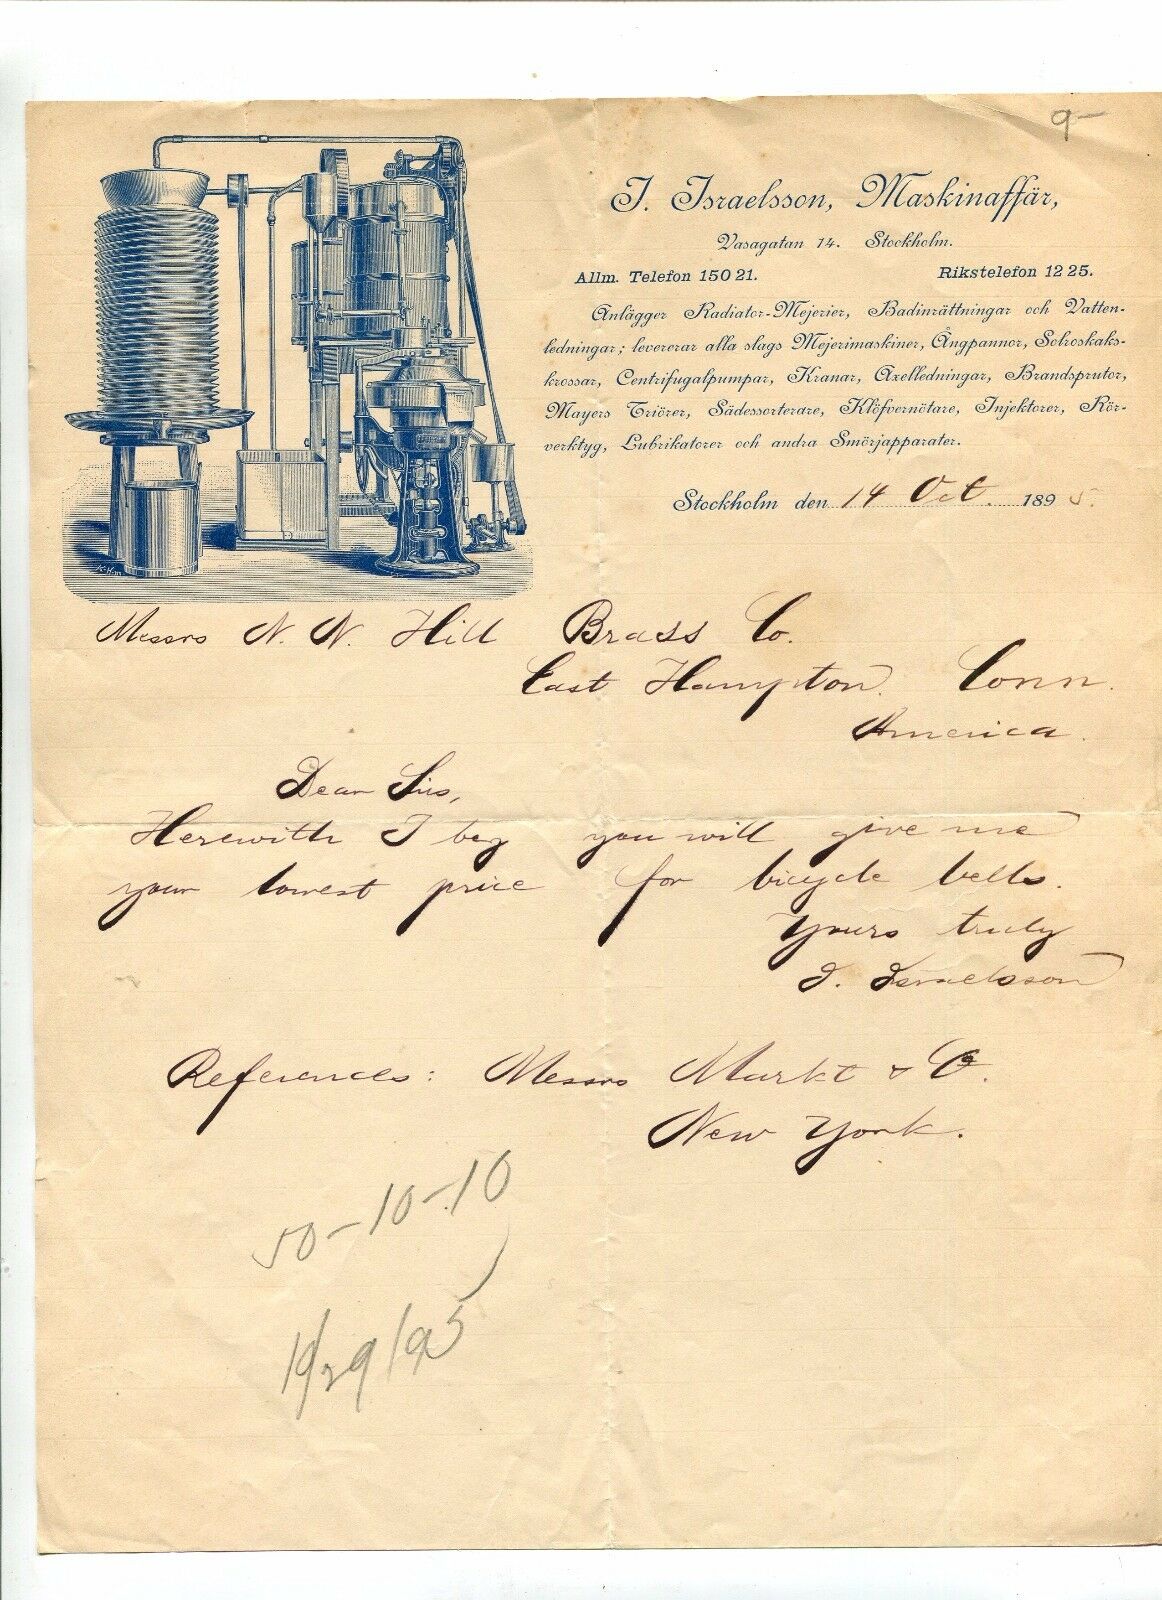 9-
J. Israelsson, Maskinaffär,
Vasagatan 14. Stockholm.
Allm. Telefon 150 21. Rikstelefon 12 25.
Anlägger Radiator-Mejerier, Badinrättningar och Vatten-
ledningar; levererar alla slags Mejerimaskiner, Ångpannor, Solroskaks-
krossar, Centrifugalpumpar, Kranar, Axelledningar, Brandsprutor,
Mayers Triörer, Sädessorterare, Klöfvernötare, Injektorer, Rör-
verktyg, Lubrikatorer och andra Smörjapparater.
Stockholm den 14 Oct. 1895.
Messrs N. N. Hill Brass Co.
East Hampton. Conn.
America.
Dear Sirs,
Herewith I beg you will give me
your lowest price for bicycle bells.
Yours truly
J. Israelsson
References: Messrs Markt & Co.
New York.
50-10-10
10/29/95